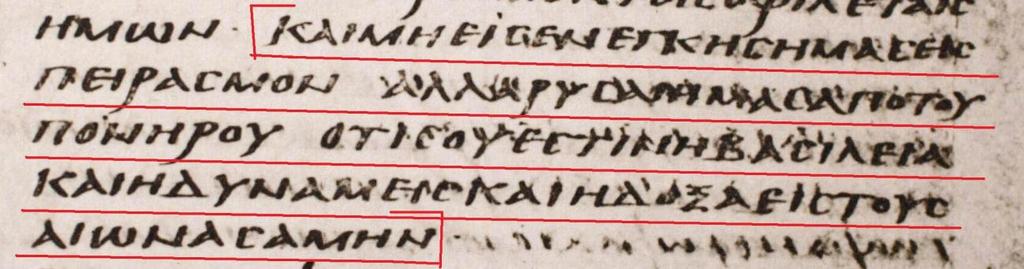 ΗΜΩΝ · ΚΑΙΜΗΕΙCΕΝΕΓΚΗCΗΜΑCΕΙC
ΠΕΙΡΑCΜΟΝ ΑΛΛΑΡΥCΑΙΗΜΑCΑΠΟΤΟΥ
ΠΟΝΗΡΟΥ ΟΤΙCΟΥΕCΤΙΝΗΒΑCΙΛΕΙΑ
ΚΑΙΗΔΥΝΑΜΕΙCΚΑΙΗΔΟΞΑΕΙCΤΟΥC
ΑΙΩΝΑCΑΜΗΝ